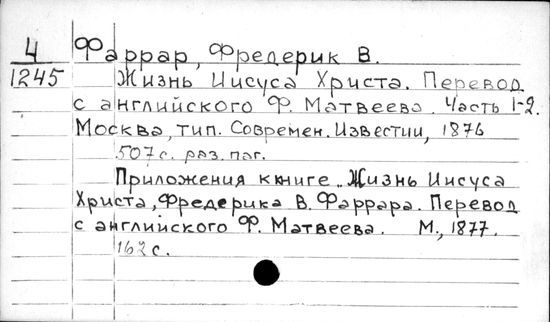 4 Фаррар, Фредерик В.
1245 Жизнь Иисуса Христа. Перевод
с английского Ф. Матвеева. Часть 1-2.
Москва, тип. Современ. Известии, 1876
507 с. раз. паг.
Приложения к книге „Жизнь Иисуса
Христа, Фредерика В. Фаррара. Перевод
с английского Ф. Матвеева. М., 1877.
162 с.